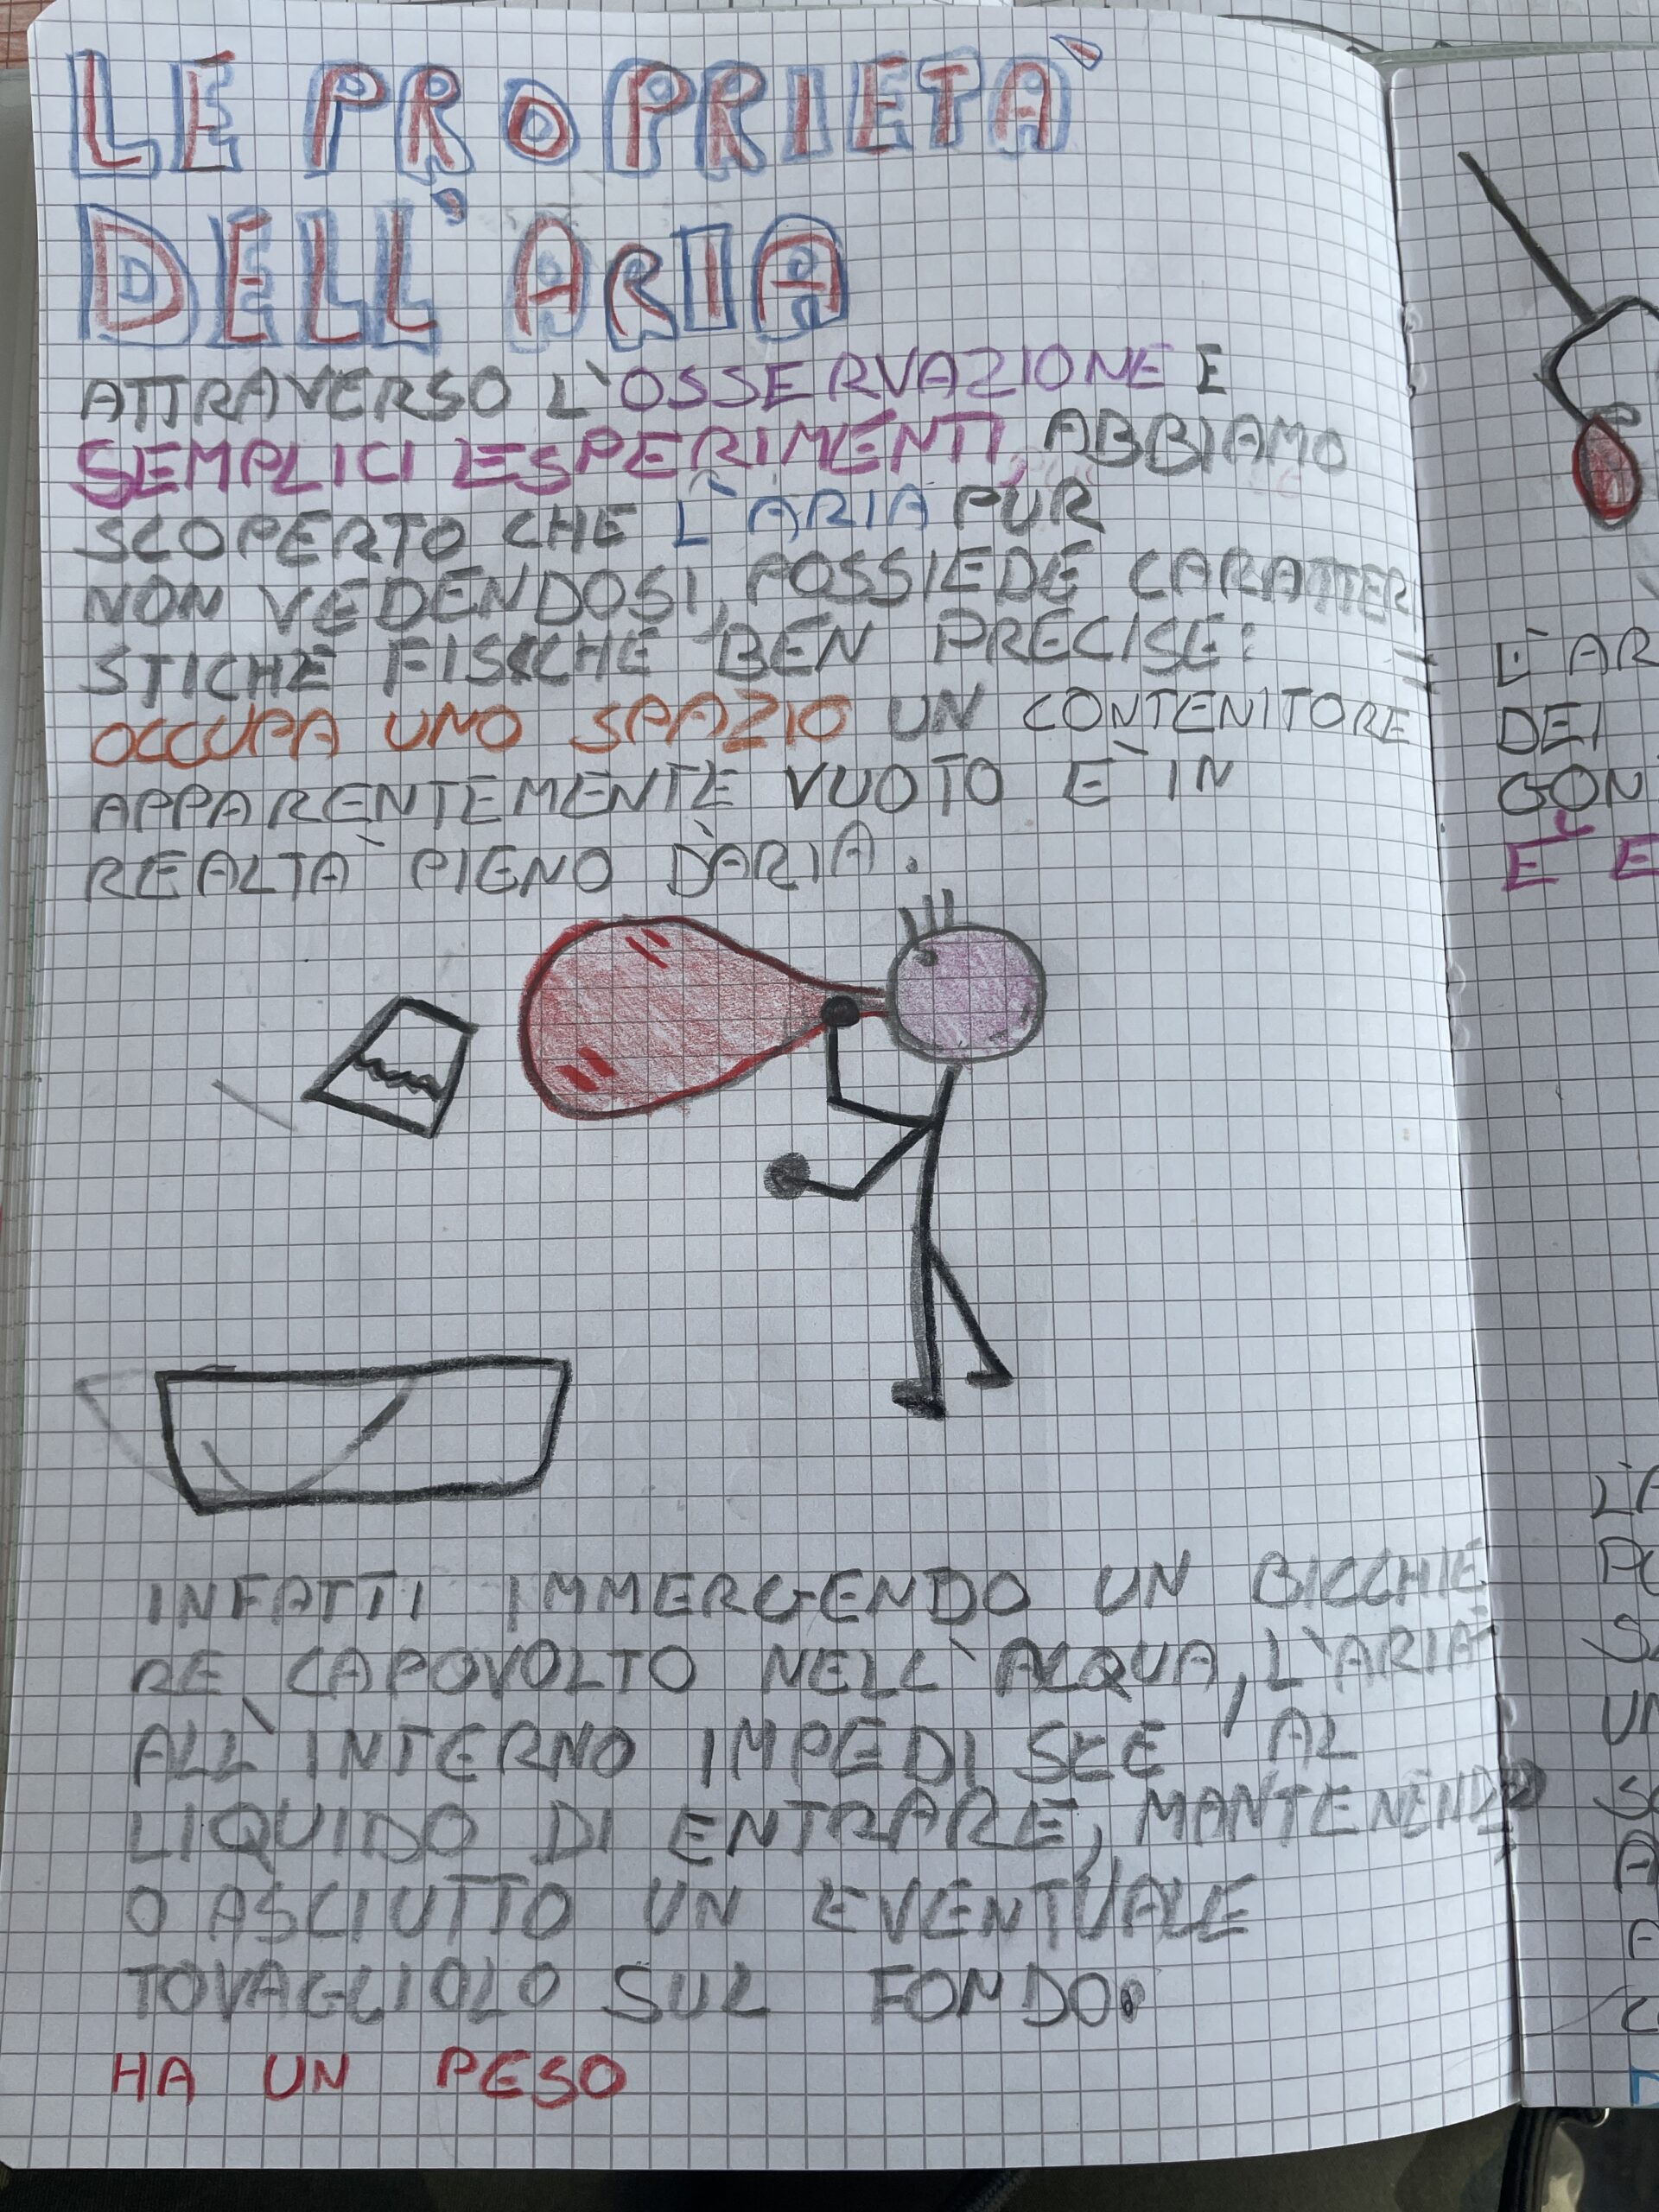 LE PROPRIETÀ
DELL'ARIA
ATTRAVERSO L'OSSERVAZIONE E
SEMPLICI ESPERIMENTI, ABBIAMO
SCOPERTO CHE L'ARIA PUR
NON VEDENDOSI, POSSIEDE CARATTERI
STICHE FISICHE BEN PRECISE:
OCCUPA UNO SPAZIO UN CONTENITORE
APPARENTEMENTE VUOTO È IN
REALTÀ PIENO D'ARIA.
INFATTI IMMERGENDO UN BICCHIE
RE CAPOVOLTO NELL'ACQUA, L'ARIA
ALL'INTERNO IMPEDISCE AL
LIQUIDO DI ENTRARE, MANTENEND
O ASCIUTTO UN EVENTUALE
TOVAGLIOLO SUL FONDO.
HA UN PESO
L'AR
DEI
GON
È E
L'A
PO
UN